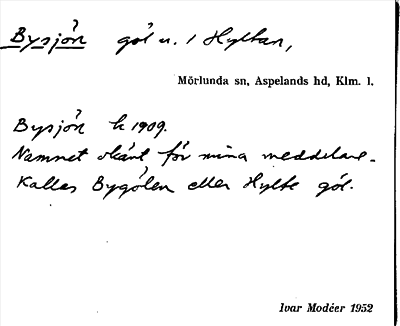 Bysjön göl u. 1 Hyltan,
Mörlunda sn, Aspelands hd, Klm. l.
Bysjön k 1909.
Namnet okänt för mina meddelare.
Kallas Bygölen eller Hylte göl.
Ivar Modéer 1952